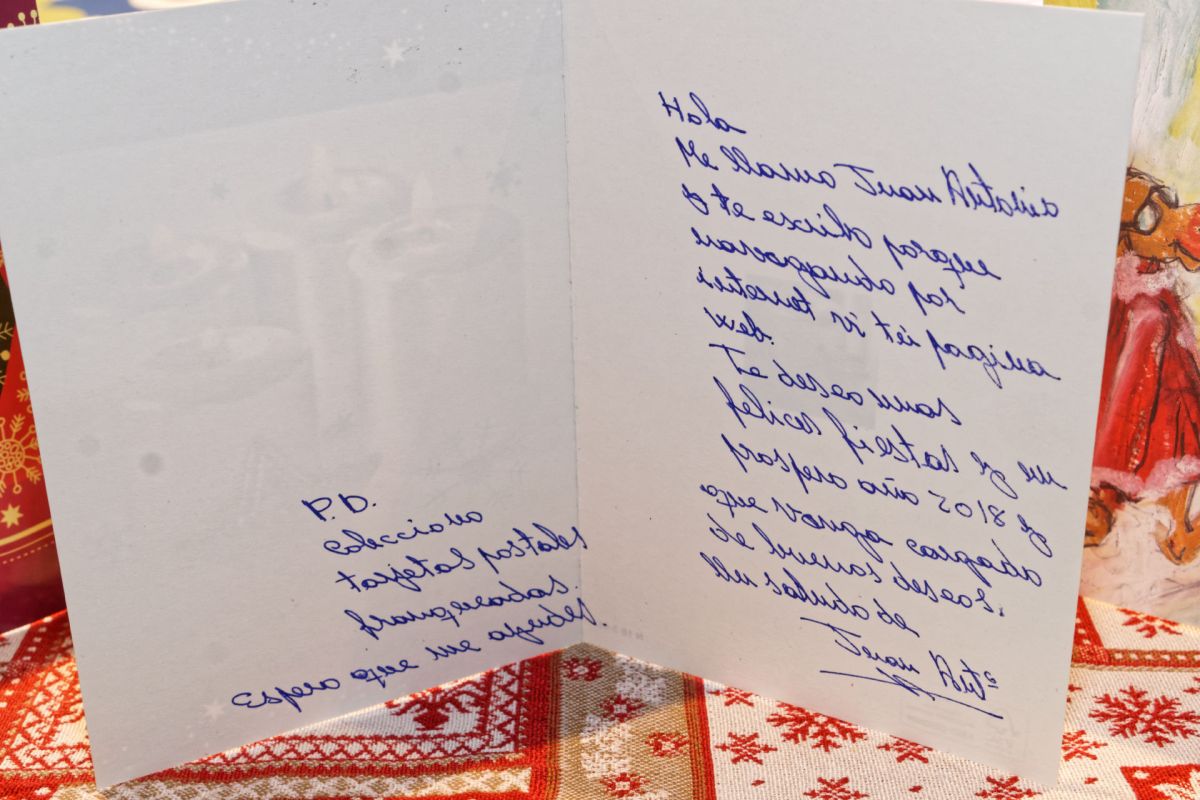 Hola
Me llamo Juan Antonio
y te escribo porque
navegando por
internet vi tu pagina
web.
Te deseamos
felices fiestas y un
prospero año 2018 y
que venga cargado
de buenos deseos.
Un saludo de
Juan Antº
P.D.
colecciono
tarjetas postales
franqueadas.
Espero que me ayudes.